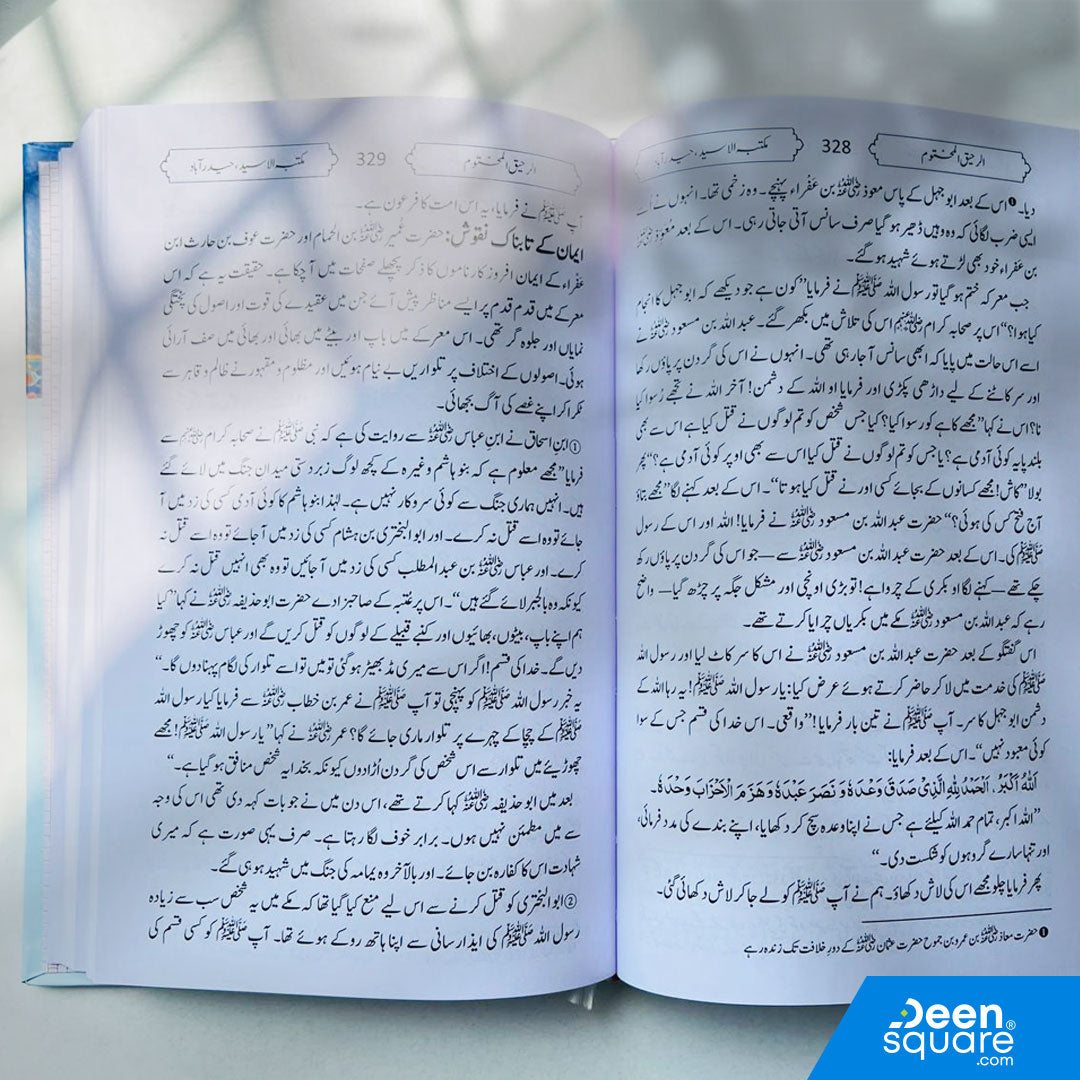 الرحیق المختوم 328 مکتبہ الاسید، حیدرآباد
دیا۔❶ اس کے بعد ابوجہل کے پاس معوذ رضی اللہ عنہ بن عَفْراء پہنچے۔ وہ زخمی تھا۔ انہوں نے اُسے
ایسی ضرب لگائی کہ وہ وہیں ڈھیر ہو گیا صرف سانس آتی جاتی رہی۔ اس کے بعد معوذ رضی اللہ عنہ
بن عفراء خود بھی لڑتے ہوئے شہید ہو گئے۔
جب معرکہ ختم ہو گیا تو رسول اللہ ﷺ نے فرمایا ”کون ہے جو دیکھے کہ ابوجہل کا انجام
کیا ہوا؟“ اس پر صحابہ کرام رضی اللہ عنہم اس کی تلاش میں بکھر گئے۔ عبداللہ بن مسعود رضی اللہ عنہ نے
اسے اس حالت میں پایا کہ ابھی سانس آ جا رہی تھی۔ انہوں نے اس کی گردن پر پاؤں رکھا
اور سر کاٹنے کے لیے داڑھی پکڑی اور فرمایا او اللہ کے دشمن! آخر اللہ نے تجھے رُسوا کیا
نا؟ اس نے کہا ”مجھے کاہے کو رسوا کیا؟ کیا جس شخص کو تم لوگوں نے قتل کیا ہے اس سے بھی
بلند پایہ کوئی آدمی ہے؟ یا جس کو تم لوگوں نے قتل کیا اس سے بھی اوپر کوئی آدمی ہے؟“ پھر
بولا ”کاش! مجھے کسانوں کے بجائے کسی اور نے قتل کیا ہوتا“۔ اس کے بعد کہنے لگا ”مجھے بتاؤ
آج فتح کس کی ہوئی؟“ حضرت عبداللہ بن مسعود رضی اللہ عنہ نے فرمایا! اللہ اور اس کے رسول
ﷺ کی۔ اس کے بعد حضرت عبداللہ بن مسعود رضی اللہ عنہ سے — جو اس کی گردن پر پاؤں رکھ
چکے تھے — کہنے لگا او بکری کے چرواہے! تو بڑی اونچی اور مشکل جگہ پر چڑھ گیا — واضح
رہے کہ عبداللہ بن مسعود رضی اللہ عنہ مکے میں بکریاں چرایا کرتے تھے۔
اس گفتگو کے بعد حضرت عبداللہ بن مسعود رضی اللہ عنہ نے اس کا سر کاٹ لیا اور رسول اللہ
ﷺ کی خدمت میں لا کر حاضر کرتے ہوئے عرض کیا: یا رسول اللہ ﷺ! یہ رہا اللہ کے
دشمن ابوجہل کا سر۔ آپ ﷺ نے تین بار فرمایا! ”واقعی۔ اس خدا کی قسم جس کے سوا
کوئی معبود نہیں“۔ اس کے بعد فرمایا:
اَللهُ اَكْبَرُ، اَلْحَمْدُ لِلّٰهِ الَّذِیْ صَدَقَ وَعْدَهٗ وَ نَصَرَ عَبْدَهٗ وَ هَزَمَ الْاَحْزَابَ وَحْدَهٗ۔
”اللہ اکبر، تمام حمد اللہ کیلئے ہے جس نے اپنا وعدہ سچ کر دکھایا، اپنے بندے کی مدد فرمائی،
اور تنہا سارے گروہوں کو شکست دی۔“
پھر فرمایا چلو مجھے اس کی لاش دکھاؤ۔ ہم نے آپ ﷺ کو لے جا کر لاش دکھائی گئی۔
❶ حضرت معاذ رضی اللہ عنہ بن عمرو بن جموح حضرت عثمان رضی اللہ عنہ کے دورِ خلافت تک زندہ رہے
الرحیق المختوم 329 مکتبہ الاسید، حیدرآباد
آپ ﷺ نے فرمایا، یہ اس امت کا فرعون ہے۔
ایمان کے تابناک نقوش: حضرت عُمیر رضی اللہ عنہ بن الحمام اور حضرت عوف بن حارث ابن
عفراء کے ایمان افروز کارناموں کا ذکر پچھلے صفحات میں آ چکا ہے۔ حقیقت یہ ہے کہ اس
معرکے میں قدم قدم پر ایسے مناظر پیش آئے جن میں عقیدے کی قوت اور اصول کی پختگی
نمایاں اور جلوہ گر تھی۔ اس معرکے میں باپ اور بیٹے میں بھائی اور بھائی میں صف آرائی
ہوئی۔ اصولوں کے اختلاف پر تلواریں بے نیام ہوئیں اور مظلوم و مقہور نے ظالم و قاہر سے
ٹکرا کر اپنے غصے کی آگ بجھائی۔
① ابنِ اسحاق نے ابنِ عباس رضی اللہ عنہ سے روایت کی ہے کہ نبی ﷺ نے صحابہ کرام رضی اللہ عنہم سے
فرمایا ”مجھے معلوم ہے کہ بنو ہاشم وغیرہ کے کچھ لوگ زبردستی میدان جنگ میں لائے گئے
ہیں۔ انہیں ہماری جنگ سے کوئی سروکار نہیں ہے۔ لہٰذا بنو ہاشم کا کوئی آدمی کسی کی زد میں آ
جائے تو وہ اسے قتل نہ کرے۔ اور ابو البختری بن ہشام کسی کی زد میں آ جائے تو وہ اسے قتل نہ
کرے۔ اور عباس رضی اللہ عنہ بن عبدالمطلب کسی کی زد میں آ جائیں تو وہ بھی انہیں قتل نہ کرے
کیونکہ وہ بالجبر لائے گئے ہیں“۔ اس پر عُتبہ کے صاحبزادے حضرت ابو حذیفہ رضی اللہ عنہ نے کہا ”کیا
ہم اپنے باپ، بیٹوں، بھائیوں اور کنبے قبیلے کے لوگوں کو قتل کریں گے اور عباس رضی اللہ عنہ کو چھوڑ
دیں گے۔ خدا کی قسم! اگر اس سے میری مڈبھیڑ ہو گئی تو میں تو اسے تلوار کی لگام پہنا دوں گا۔“
یہ خبر رسول اللہ ﷺ کو پہنچی تو آپ ﷺ نے عمر بن خطاب رضی اللہ عنہ سے فرمایا کیا رسول اللہ
ﷺ کے چچا کے چہرے پر تلوار ماری جائے گا؟ عمر رضی اللہ عنہ نے کہا ”یا رسول اللہ ﷺ! مجھے
چھوڑیئے میں تلوار سے اس شخص کی گردن اُڑا دوں کیونکہ بخدا یہ شخص منافق ہو گیا ہے۔“
بعد میں ابو حذیفہ رضی اللہ عنہ کہا کرتے تھے، اس دن میں نے جو بات کہہ دی تھی اس کی وجہ
سے میں مطمئن نہیں ہوں۔ برابر خوف لگا رہتا ہے۔ صرف یہی صورت ہے کہ میری
شہادت اس کا کفارہ بن جائے۔ اور بالآخر وہ یمامہ کی جنگ میں شہید ہو ہی گئے۔
② ابو البختری کو قتل کرنے سے اس لیے منع کیا گیا تھا کہ مکے میں یہ شخص سب سے زیادہ
رسول اللہ ﷺ کی ایذا رسانی سے اپنا ہاتھ روکے ہوئے تھا۔ آپ ﷺ کو کسی قسم کی
Deen
square®
.com